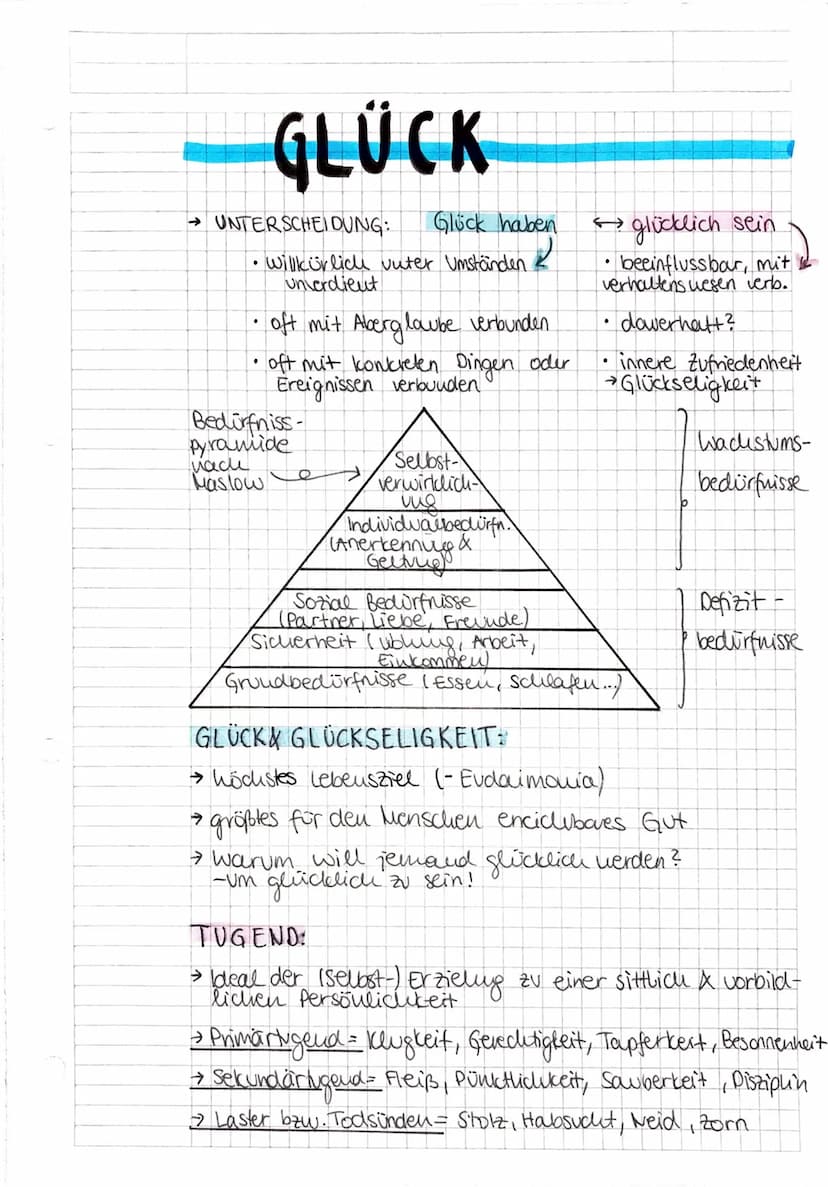 GLÜCK
→ UNTERSCHEIDUNG: Glück haben ↔ glücklich sein
• willkürlich unter Umständen
unverdient
• beeinflussbar, mit
verhaltenswesen verb.
• oft mit Aberglaube verbunden
• dauerhaft?
• oft mit konkreten Dingen oder
Ereignissen verbunden
• innere Zufriedenheit
→ Glückseligkeit
Bedürfniss-
pyramide
nach
Maslow
Selbst-
verwirklich-
ung
Individualbedürfn.
(Anerkennung &
Geltung)
Sozial Bedürfnisse
(Partner, Liebe, Freunde)
Sicherheit (Wohnung, Arbeit,
Einkommen)
Grundbedürfnisse (Essen, Schlafen...)
Wachstums-
bedürfnisse
Defizit-
bedürfnisse
GLÜCK & GLÜCKSELIGKEIT:
→ höchstes Lebensziel (- Eudaimonia)
→ größtes für den Menschen erreichbares Gut
→ Warum will jemand glücklich werden?
-um glücklich zu sein!
TUGEND:
→ Ideal der (Selbst-) Erziehung zu einer sittlich & vorbild-
lichen Persönlichkeit
→ Primärtugend = Klugkeit, Gerechtigkeit, Tapferkeit, Besonnenheit
→ Sekundärtugend = Fleiß, Pünktlichkeit, Sauberkeit, Disziplin
→ Laster bzw. Todsünden = Stolz, Habsucht, Neid, Zorn